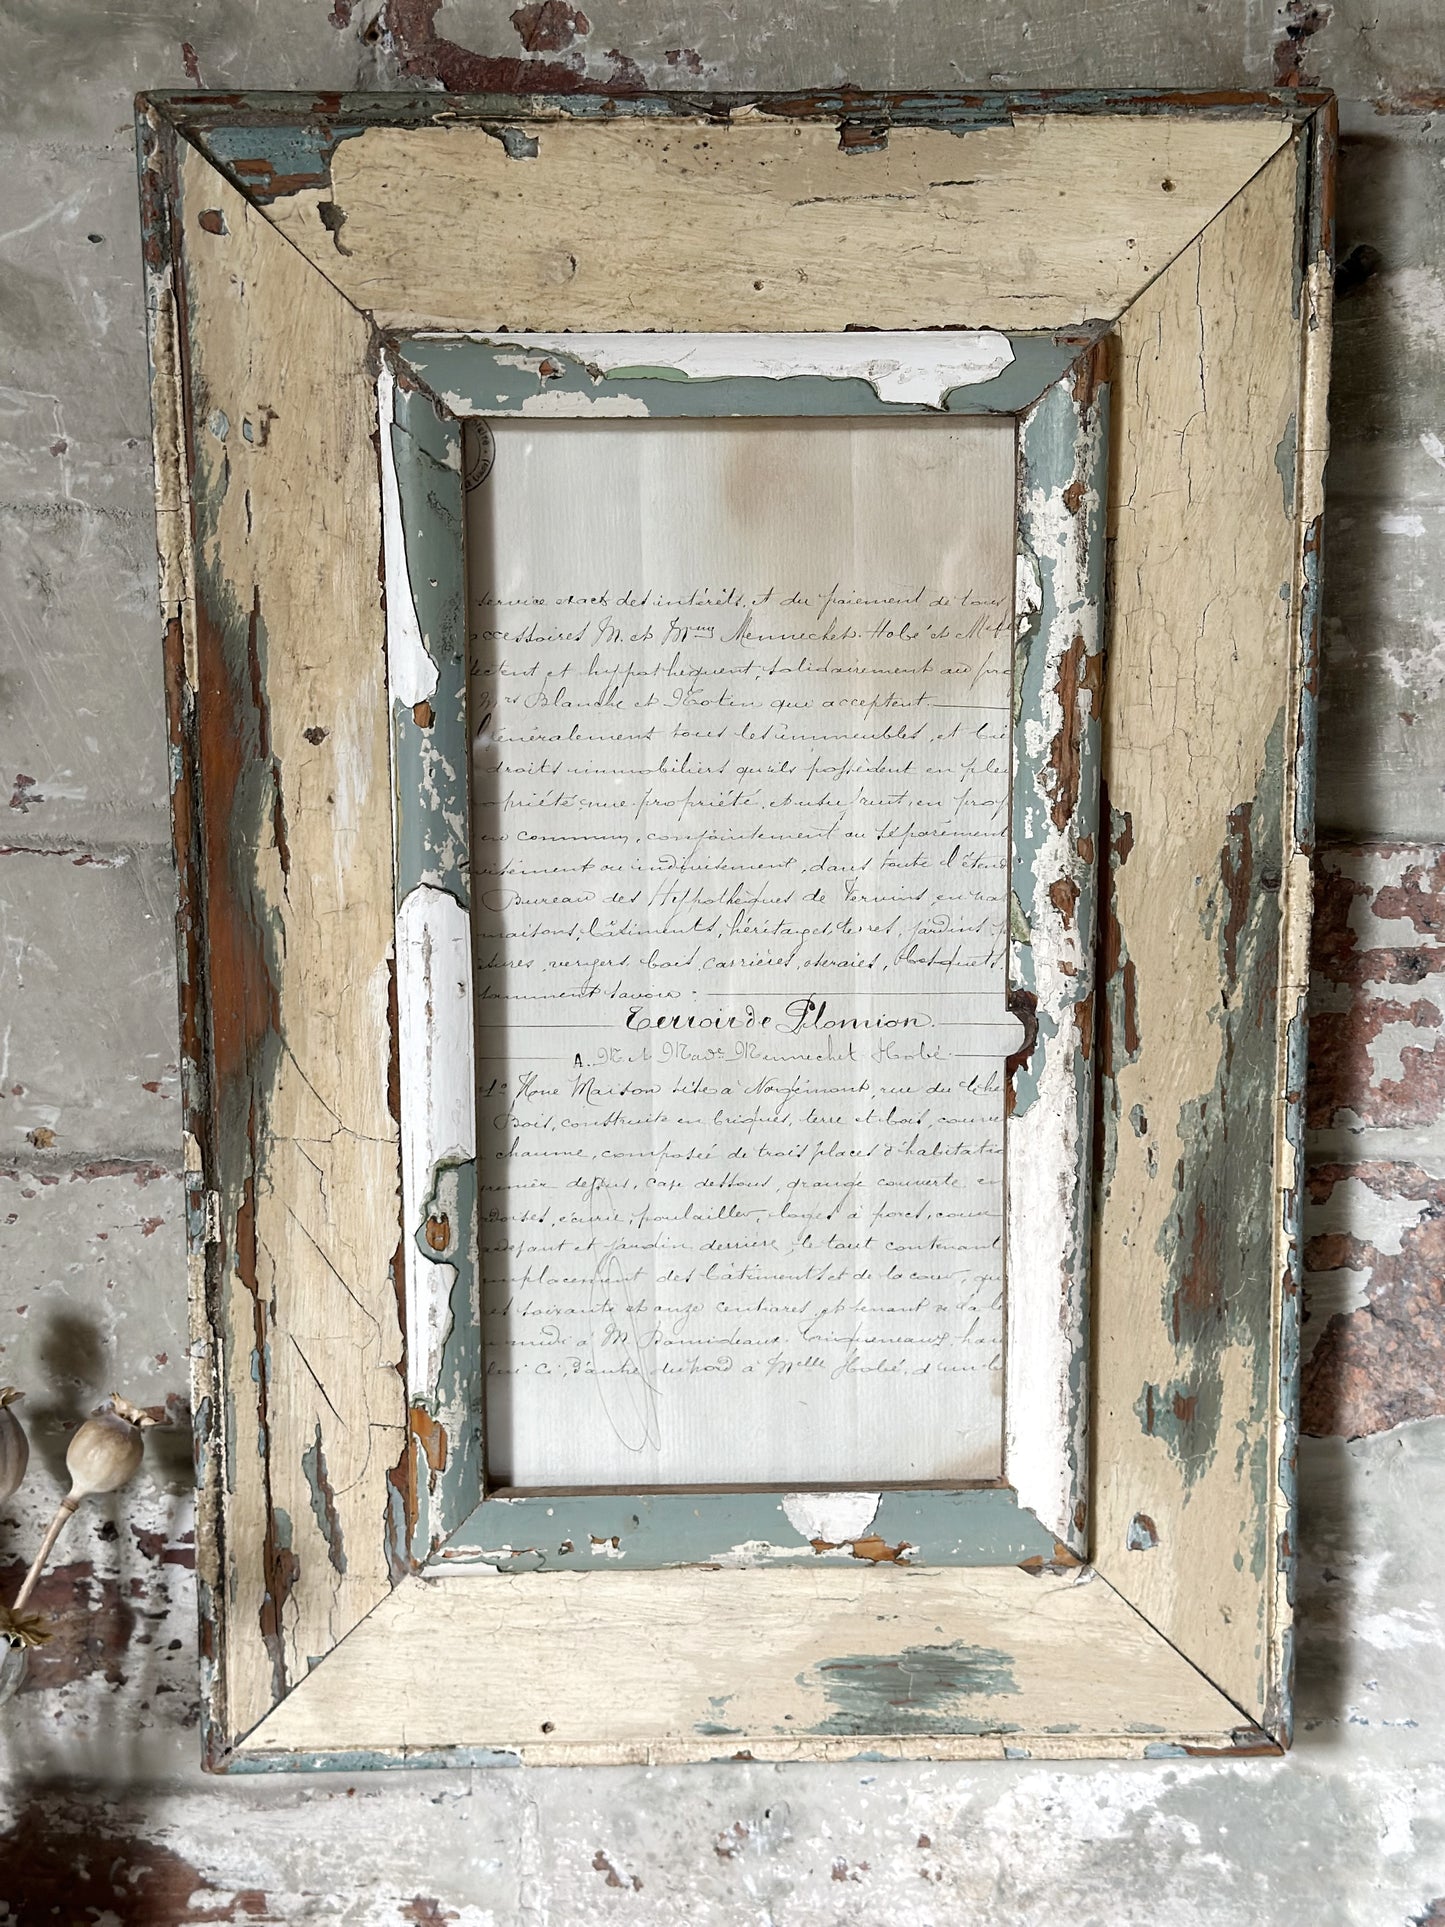 service exact des intérêts, et du paiement de tous
ccessoires M. et Mme Mennechet-Hobé et Melle
ectent et hypothèquent, solidairement au pro
Mrs Blanche et Notin qui acceptent.
généralement tous les immeubles, et bie
droits immobiliers qu'ils possèdent en plei
opriété, nue-propriété, et usufruit, en prop
en commun, conjointement ou séparément
visément ou indivisément, dans toute l'étend
Bureau des Hypothèques de Vervins, en na
maisons, bâtiments, héritages, terres, jardins, p
tures, vergers, bois, carrières, oseraies, bosquets,
tamment savoir :
Terroir de Plomion.
A. M. et Made Mennechet-Hobé.
1° Une Maison sise à , rue du
Bois, construite en briques, terre et bois, couve
chaume, composée de trois places d'habitatio
premier dessus, cave dessous, grande couverte en
ardoises, écurie, poulailler, loges à porcs, cour
devant et jardin derrière, le tout contenant
emplacement des bâtiments et de la cour, qu
es soixante et onze centiares, et tenant de
midi à M.
lui ci, d'autre du nord à Melle Hobé, d'un